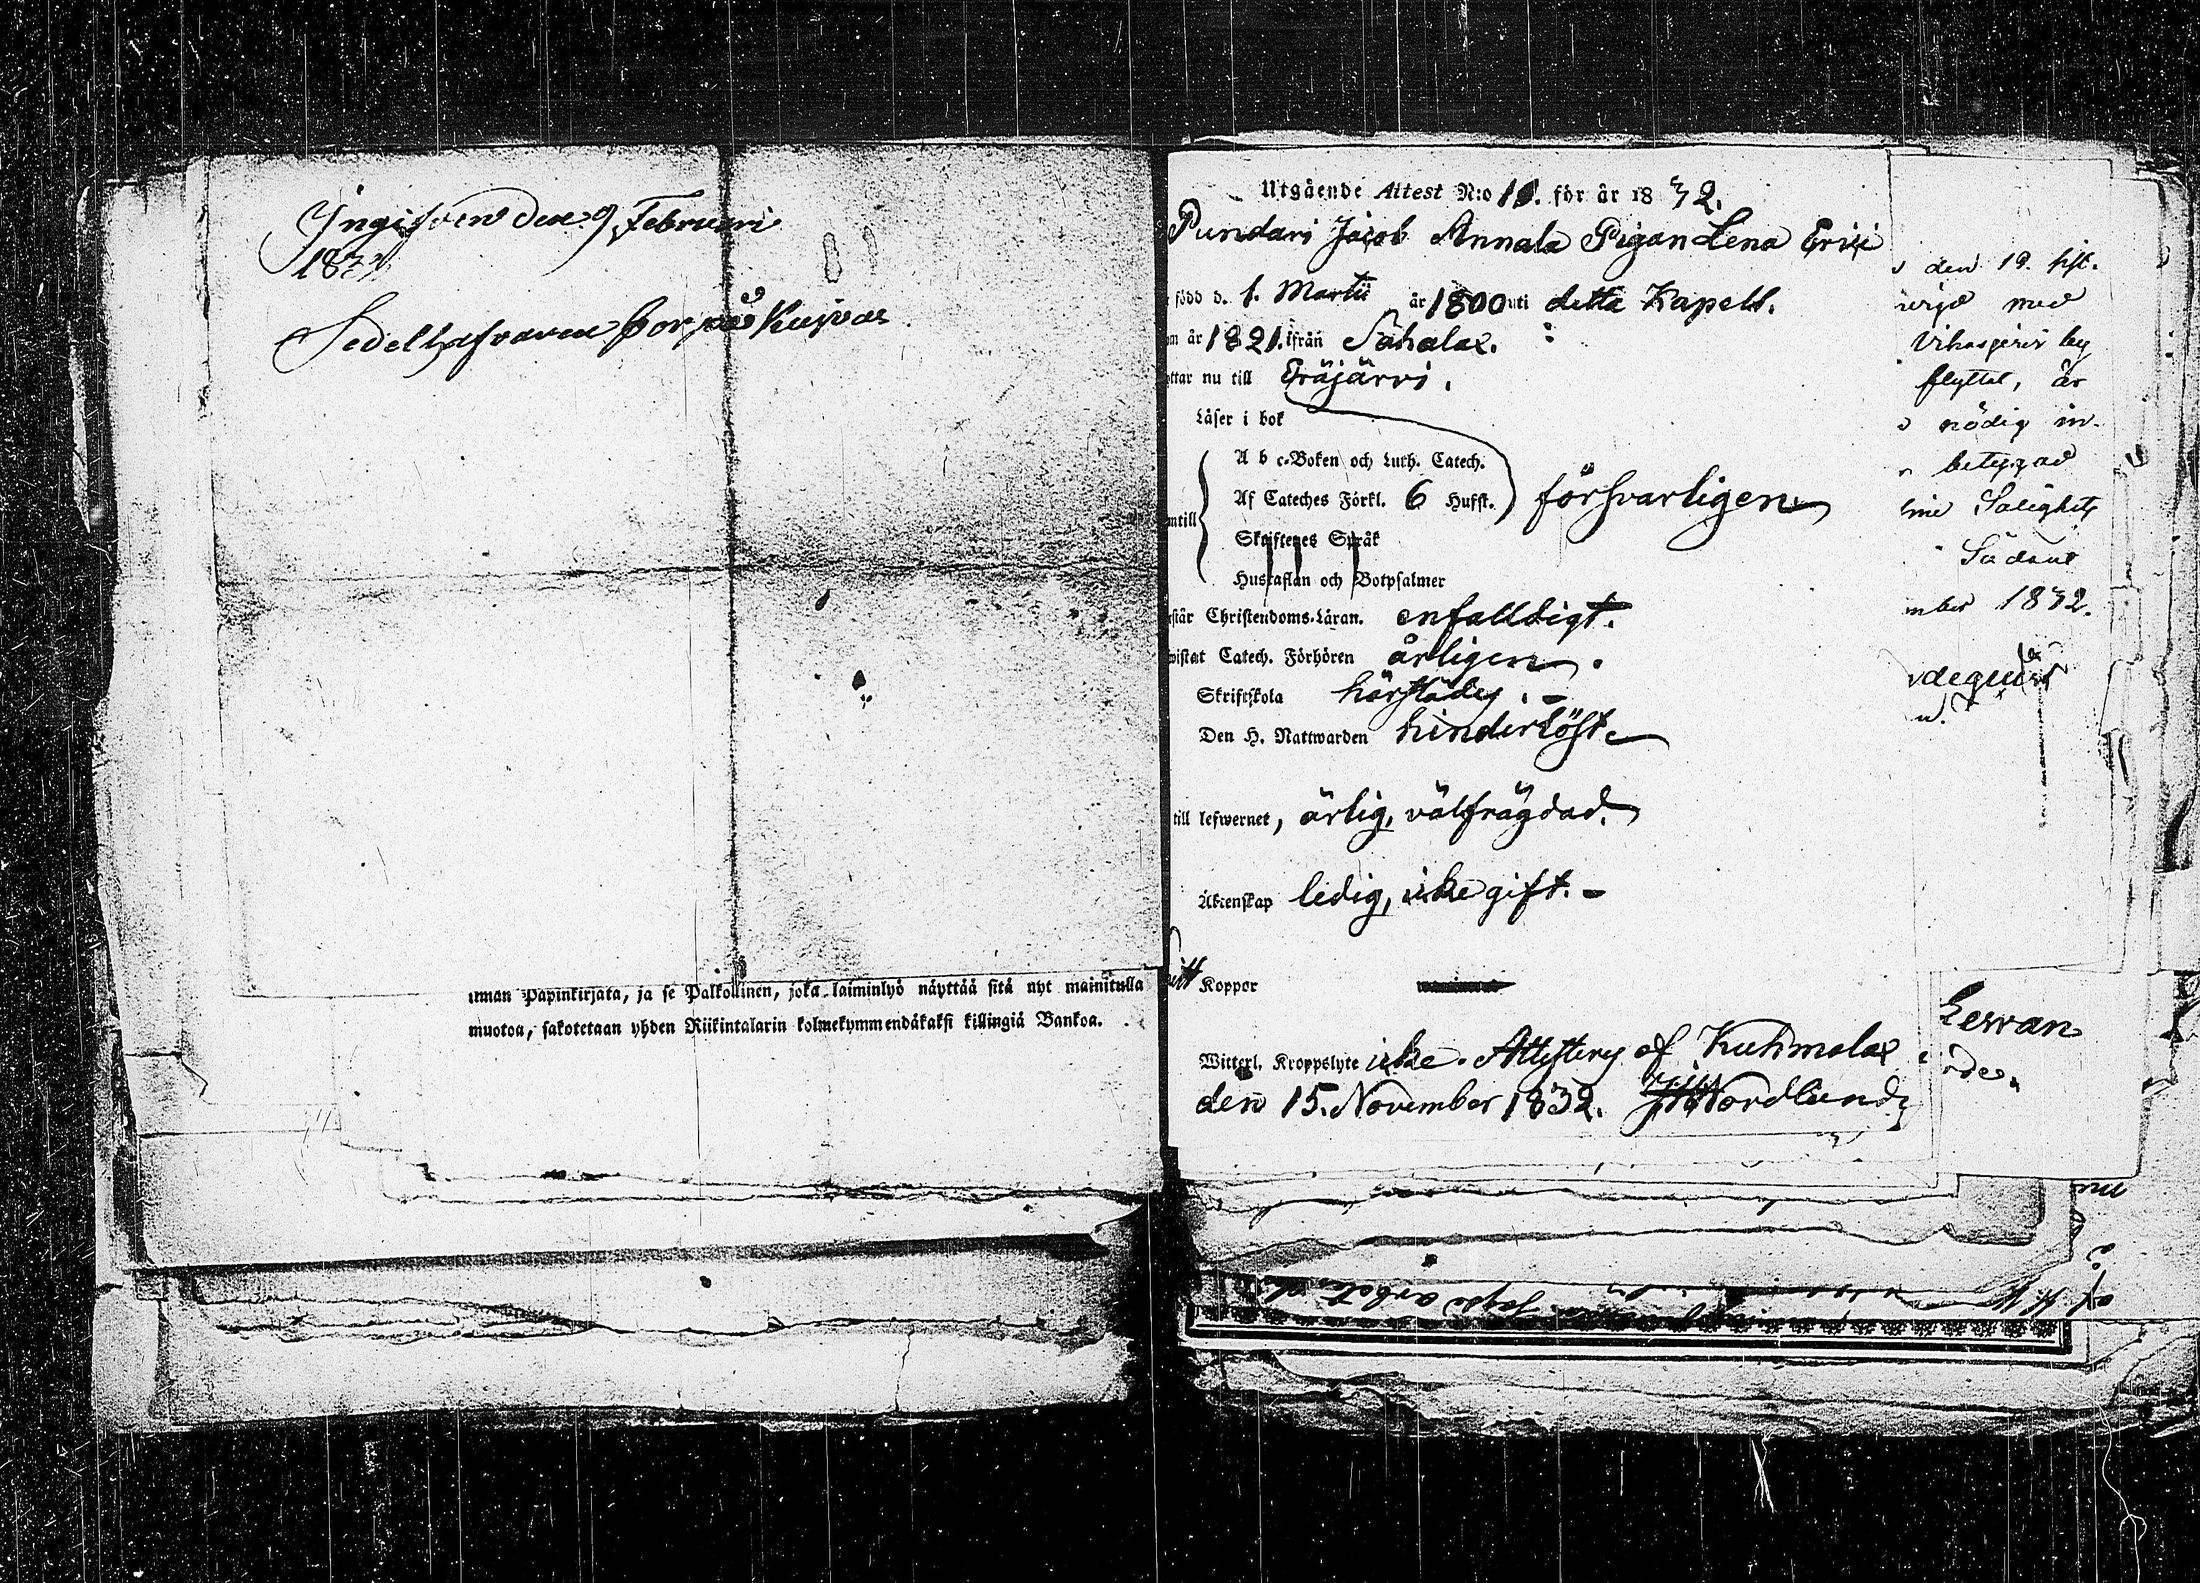 Ingifven den 9 Februari
1833
Sedelhafvaren bor på Kuivas
uman Papinkirjata, ja se Palkollinen, joka laiminlyö näyttää sitä nyt mainitulla
muotoa, sakotetaan yhden Riikintalarin kolmekymmendäkaksi killingiä Bankoa.
Utgående Attest N:o 10. för år 1832.
Pundari Jacob Annala Pigan Lena Erici
född d. 1. Martii år 1800 uti detta Kapell.
år 1821. ifrån Sahalax.
ttar nu till Eräjärvi.
Läser i bok
A b c-Boken och Luth. Catech.
Af Cateches Förkl. 6 Hufst. försvarligen
mtill
Skriftenes Språk
Hustaflan och Botpsalmer
står Christendoms-Läran. enfalldigt.
wistat Catech. Förhören årligen.
Skriftskola härstädes.
Den H. Nattwarden hinderlöst.
till lefwernet, ärlig, välfrägdad.
Äktenskap ledig, icke gift.
Koppor
Witterl. Kroppslyte icke. Attesteras af Kuhmalax
den 15. November 1832. Nordlund
den 19. sist.
med
Vihasjervi by
flyttat, är
nödig in-
betygad
Salighets
Sådant
mber 1832.
Lewan